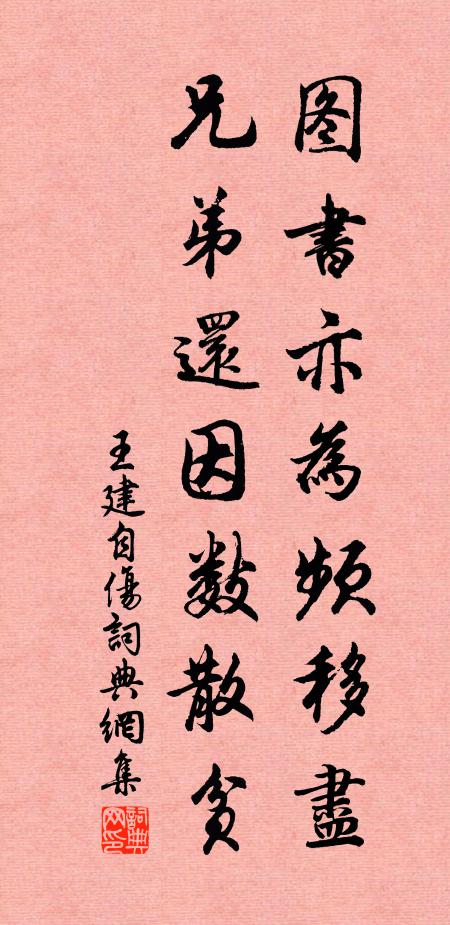 图書亦為頻移盡
兄弟還因數散貧
王建自傷詞典網集
詞典网印